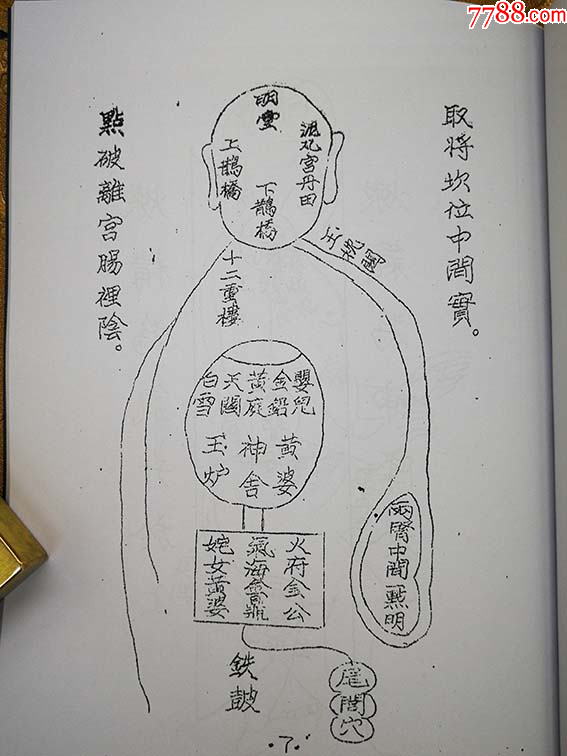 7788.com
取将坎位中間實。
點破離宮腸裡陰。
明堂
泥丸宮丹田
上鵲橋
下鵲橋
玉枕關
十二重樓
嬰兒
金鉛
黃庭
天關
白雪
黃婆
神舍
玉炉
火府金公
氣海會鼎
姹女黃婆
兩腎中間一點明
鉄皷
尾閭穴
·7·